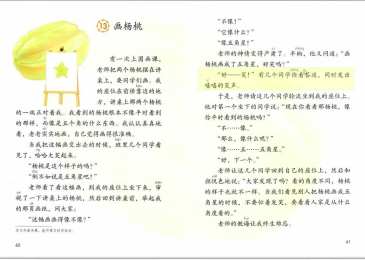 13 画杨桃
有一次上图画课，
老师把两个杨桃摆在讲
桌上，要同学们画。我
的座位在前排靠边的地
方，讲桌上那两个杨桃
的一端正对着我。我看到的杨桃根本不像平时看到
的那样，而像是五个角的什么东西。我认认真真地
看，老老实实地画，自己觉得画得很准确。
当我把这幅画交出去的时候，班里几个同学看
见了，哈哈大笑起来。
“杨桃是这个样子的吗？”
“倒不如说是五角星吧！”
老师看了看这幅画，到我的座位上坐下来，审
视了一下讲桌上的杨桃，然后回到讲台前，举起我
的那页画纸，问大家：
“这幅画画得像不像？”
60
“不像！”
“它像什么？”
“像五角星！”
老师的神情变得严肃了。半晌，他又问道：“画
杨桃画成了五角星，好笑吗？”
“好——笑！”有几个同学抢着答道，同时发出
嘻嘻的笑声。
于是，老师请这几个同学轮流坐到我的座位上。
他对第一个坐下的同学说：“现在你看看那杨桃，像
你平时看到的杨桃吗？”
“不……像。”
“那么，像什么呢？”
“像……五……五角星。”
“好，下一个。”
老师让这几个同学回到自己的座位上，然后和
颜悦色地说：“大家发现了吗？看的角度不同，杨桃
的样子也就不一样。当我们看见别人把杨桃画成五
角星的时候，不要忙着发笑，要看看人家是从什么
角度看的。”
老师的教诲让我终生难忘。
61